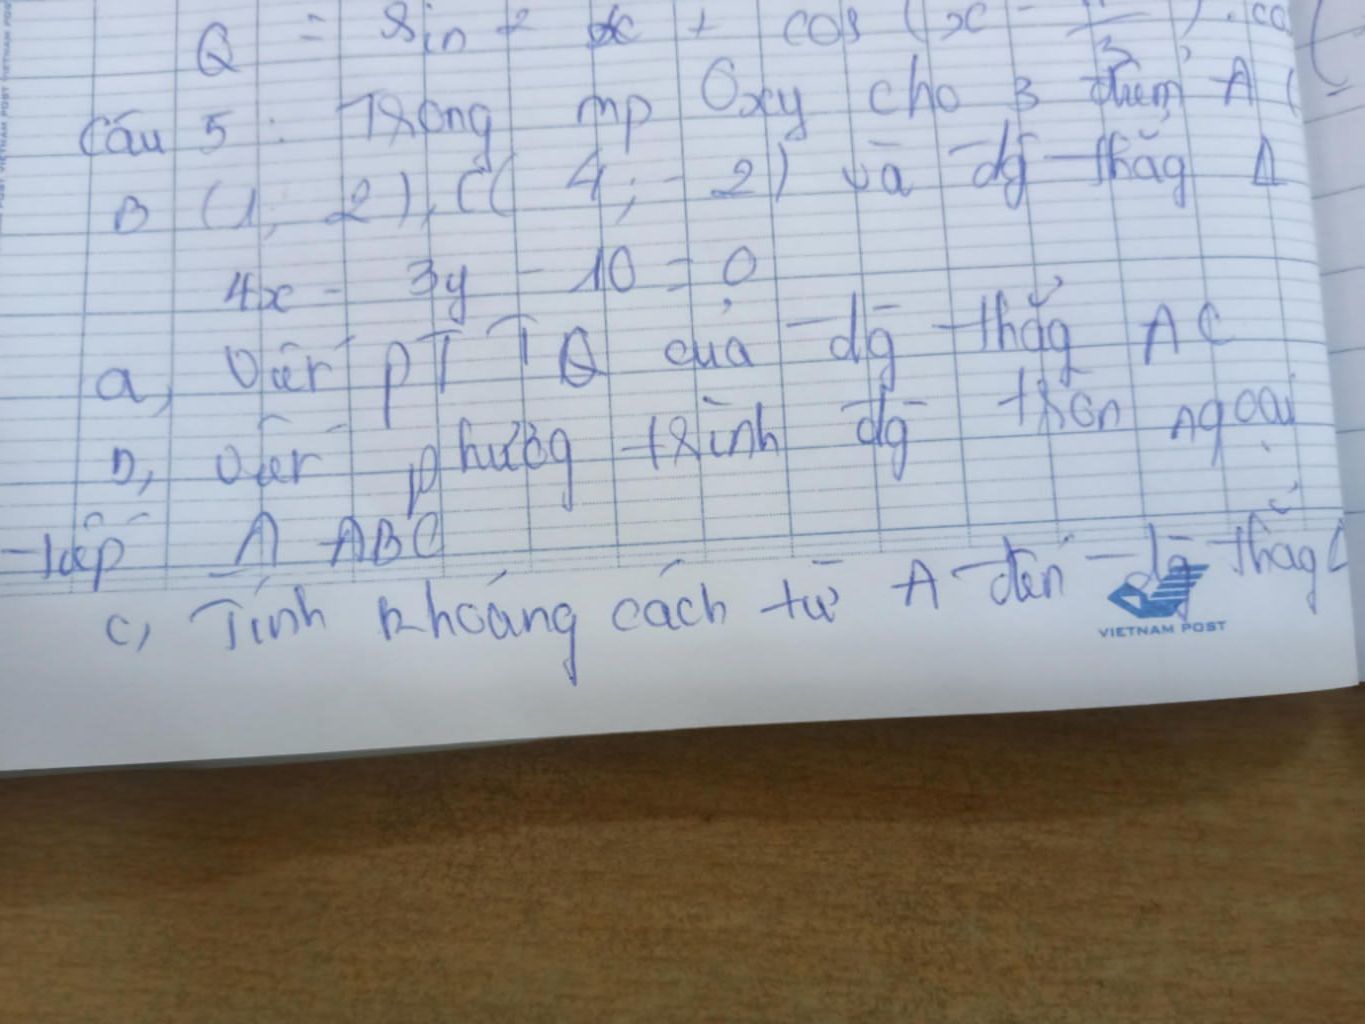 Q = Sin² x + cos (x - π/3) . co
Câu 5 : Trong mp Oxy cho 3 điểm A (
B (1, 2), C( 4; - 2) và đg thẳg Δ
4x - 3y - 10 = 0
a, Viết PT TQ của đg thẳg AC
b, Viết phươg trình đg tròn ngoại
tiếp Δ ABC
c, Tính khoảng cách từ A đến đg thẳg Δ
VIETNAM POST